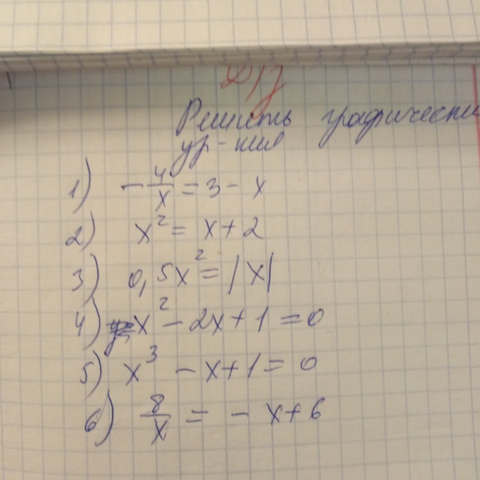 Д/з
Решить графически
ур-ния
1) -4/x = 3 - x
2) x² = x + 2
3) 0,5x² = |x|
4) x² - 2x + 1 = 0
5) x³ - x + 1 = 0
6) 8/x = - x + 6